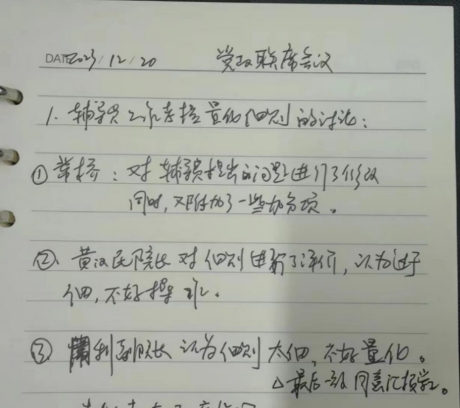 DATE 2023/12/20 党政联席会议
1. 辅导员工作考核量化细则的讨论:
① 常桥: 对辅导员提出的问题进行了修改
同时, 又附加了一些加分项。
② 黄汉民院长对细则进行了评价, 认为过于
细, 不好操作。
③ 利副院长认为细则太细, 不好量化。
△最后一致同意汇报